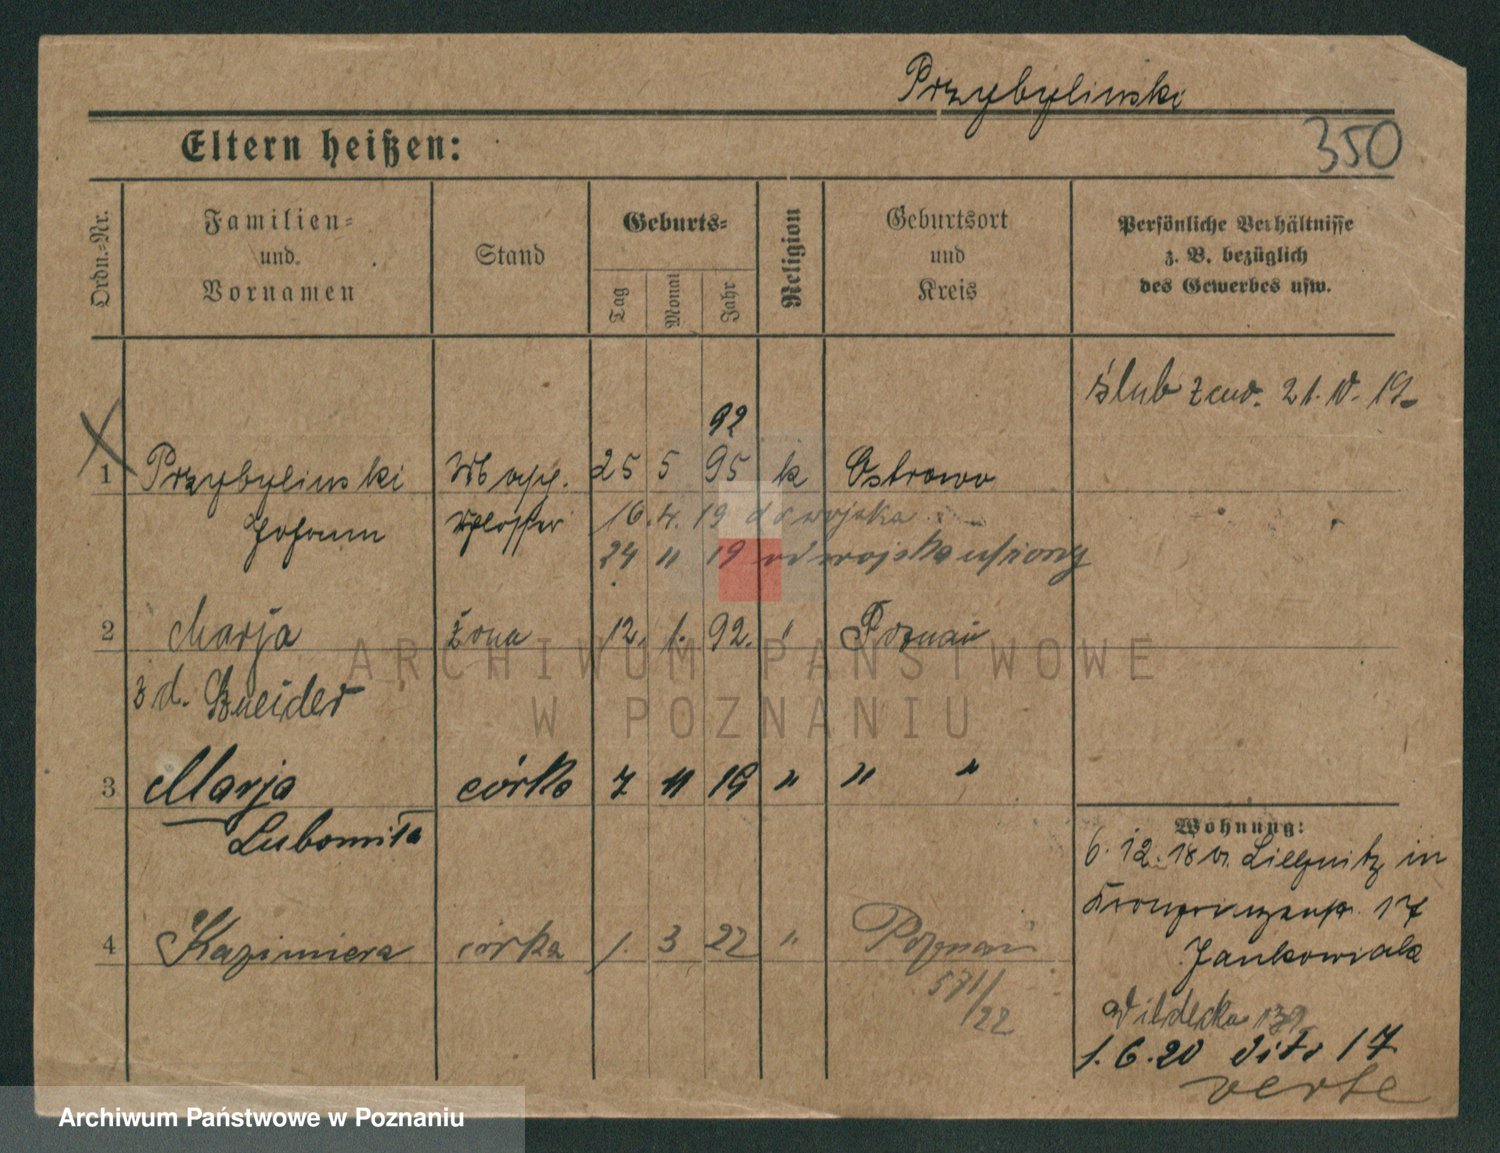 Przybylinski
350
Eltern heißen:
Ordn.-Nr.
Familien- und Vornamen
Stand
Geburts-
Tag
Monat
Jahr
Religion
Geburtsort und Kreis
Persönliche Verhältnisse z. B. bezüglich des Gewerbes usw.
ślub 21. 19
92
1 Przybylinski 25 5 95 k Ostrowo
Johann Schlosser 16. 4. 19 do wojska
24 11 19 od wojska
2 Marja żona 12. 1. 92. " Poznań
z d. Szneider
3 Marja córka 7 11 19 " " "
Lubomiła
Wohnung:
6. 12. 18 v. Liegnitz in
Kronprinzenstr. 17
4 Kazimiera córka 1. 3 22 " Poznań
Jankowiak
571/22
Wildecka
1. 6. 20 dito 17
verte
ARCHIWUM PAŃSTWOWE
W POZNANIU
Archiwum Państwowe w Poznaniu